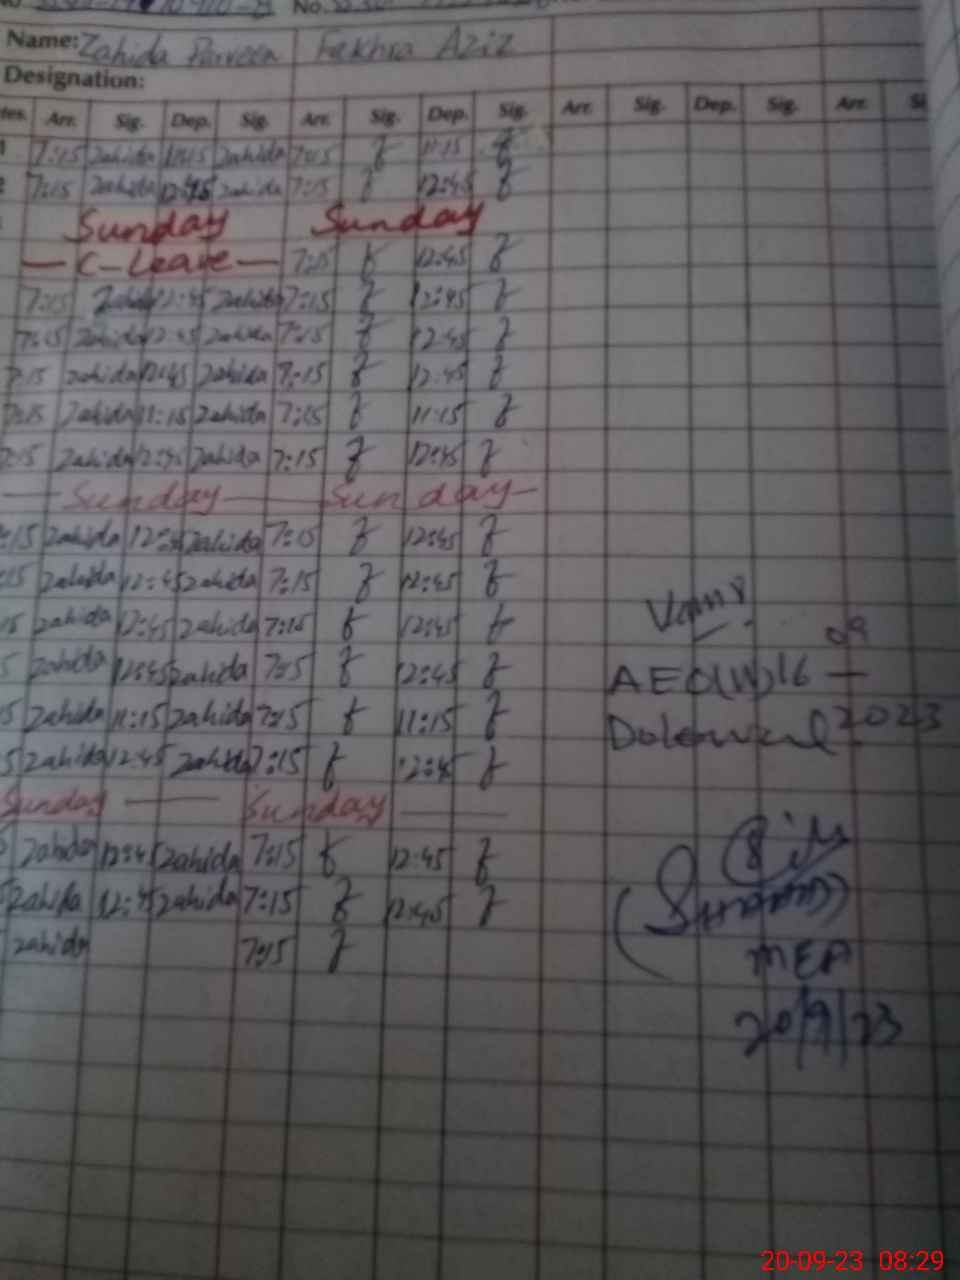 Name: Zahida Parveen Fakhra Aziz
Designation:
Arr. Sig. Dep. Sig. Arr. Sig. Dep. Sig. Arr. Sig. Dep. Sig. Arr.
7:15 Zahida 11:15 Zahida 7:15 11:15
7:15 Zahida 12:45 Zahida 7:15 12:45
Sunday Sunday
C-Leave 7:15 12:45
7:15 Zahida 12:45 Zahida 7:15 12:45
7:15 Zahida 12:45 Zahida 7:15 12:45
7:15 Zahida 12:45 Zahida 7:15 12:45
7:15 Zahida 11:15 Zahida 7:15 11:15
7:15 Zahida 12:45 Zahida 7:15 12:45
Sunday Sunday
:15 Zahida 12:45 Zahida 7:15 12:45
:15 Zahida 12:45 Zahida 7:15 12:45
15 Zahida 12:45 Zahida 7:15 12:45
5 Zahida 12:45 Zahida 7:15 12:45
5 Zahida 11:15 Zahida 7:15 11:15
5 Zahida 12:45 Zahida 7:15 12:45
Sunday Sunday
Zahida 12:45 Zahida 7:15 12:45
Zahida 12:45 Zahida 7:15 12:45
Zahida 7:15
09
AEO(W) 16 —
2023
MEA
20/9/23
20-09-23 08:29